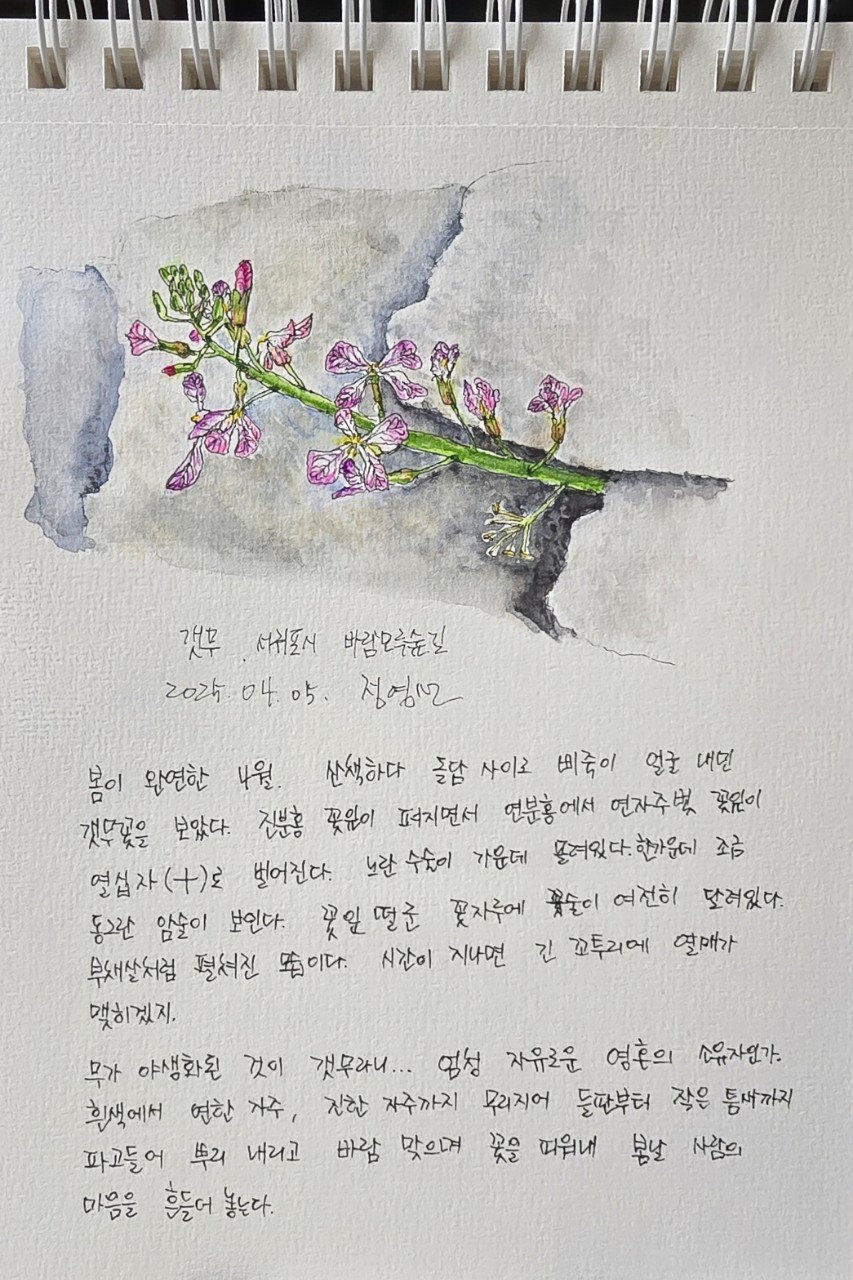 갯무 . 서귀포시 바람모루숲길
2025. 04. 05. 정영
봄이 완연한 4월. 산책하다 돌담 사이로 삐죽이 얼굴 내민
갯무꽃을 보았다. 진분홍 꽃잎이 펴지면서 연분홍에서 연자주빛 꽃잎이
열십자(十)로 벌어진다. 노란 수술이 가운데 몰려있다. 한가운데 조금
동그란 암술이 보인다. 꽃잎 떨군 꽃자루에 꽃술이 여전히 달려있다.
부채살처럼 펼쳐진 모습이다. 시간이 지나면 긴 꼬투리에 열매가
맺히겠지.
무가 야생화된 것이 갯무라니... 엄청 자유로운 영혼의 소유자인가.
흰색에서 연한 자주, 진한 자주까지 무리지어 들판부터 작은 틈새까지
파고들어 뿌리 내리고 바람 맞으며 꽃을 피워내 봄날 사람의
마음을 흔들어 놓는다.